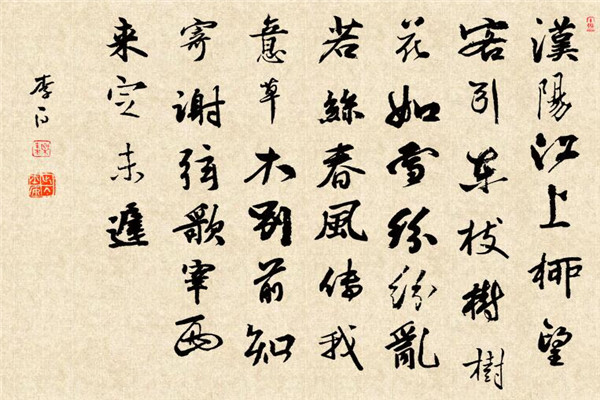 漢陽江上柳望
客引東枝樹樹
花如雪紛紛亂
若絲春風傳我
意草木別前知
寄謝弦歌宰西
来定未遲
李白